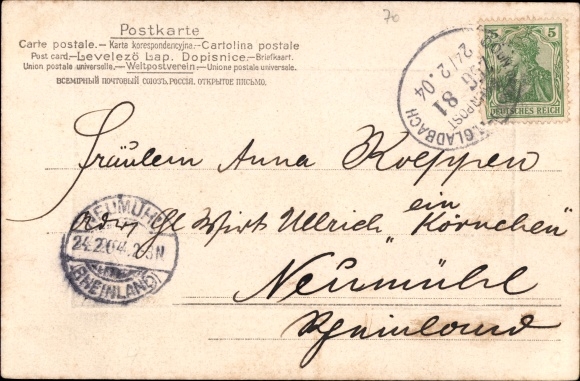 70
Postkarte
Carte postale.—Karta korespondencyjna—Cartolina postale
Post card.—Levelező Lap. Dopisnice.—Briefkaart.
Union postale universelle.—Weltpostverein—Unione postale universale.
ВСЕМІРНЫЙ ПОЧТОВЫЙ СОЮЗЪ. РОССІЯ. ОТКРЫТОЕ ПИСЬМО.
5
DEUTSCHES REICH
24/2.04
81
GLADBACH
Fräulein Anna Koeppen
adr. Wirt Ullrich "ein Körnchen"
Neumühl
Rheinland
NEUMÜHL
24.2.04
(RHEINLAND)